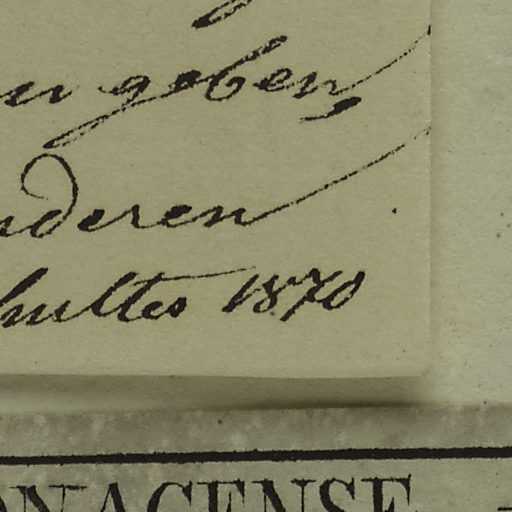 geben,
nderen
hultes 1870
ONACENSE